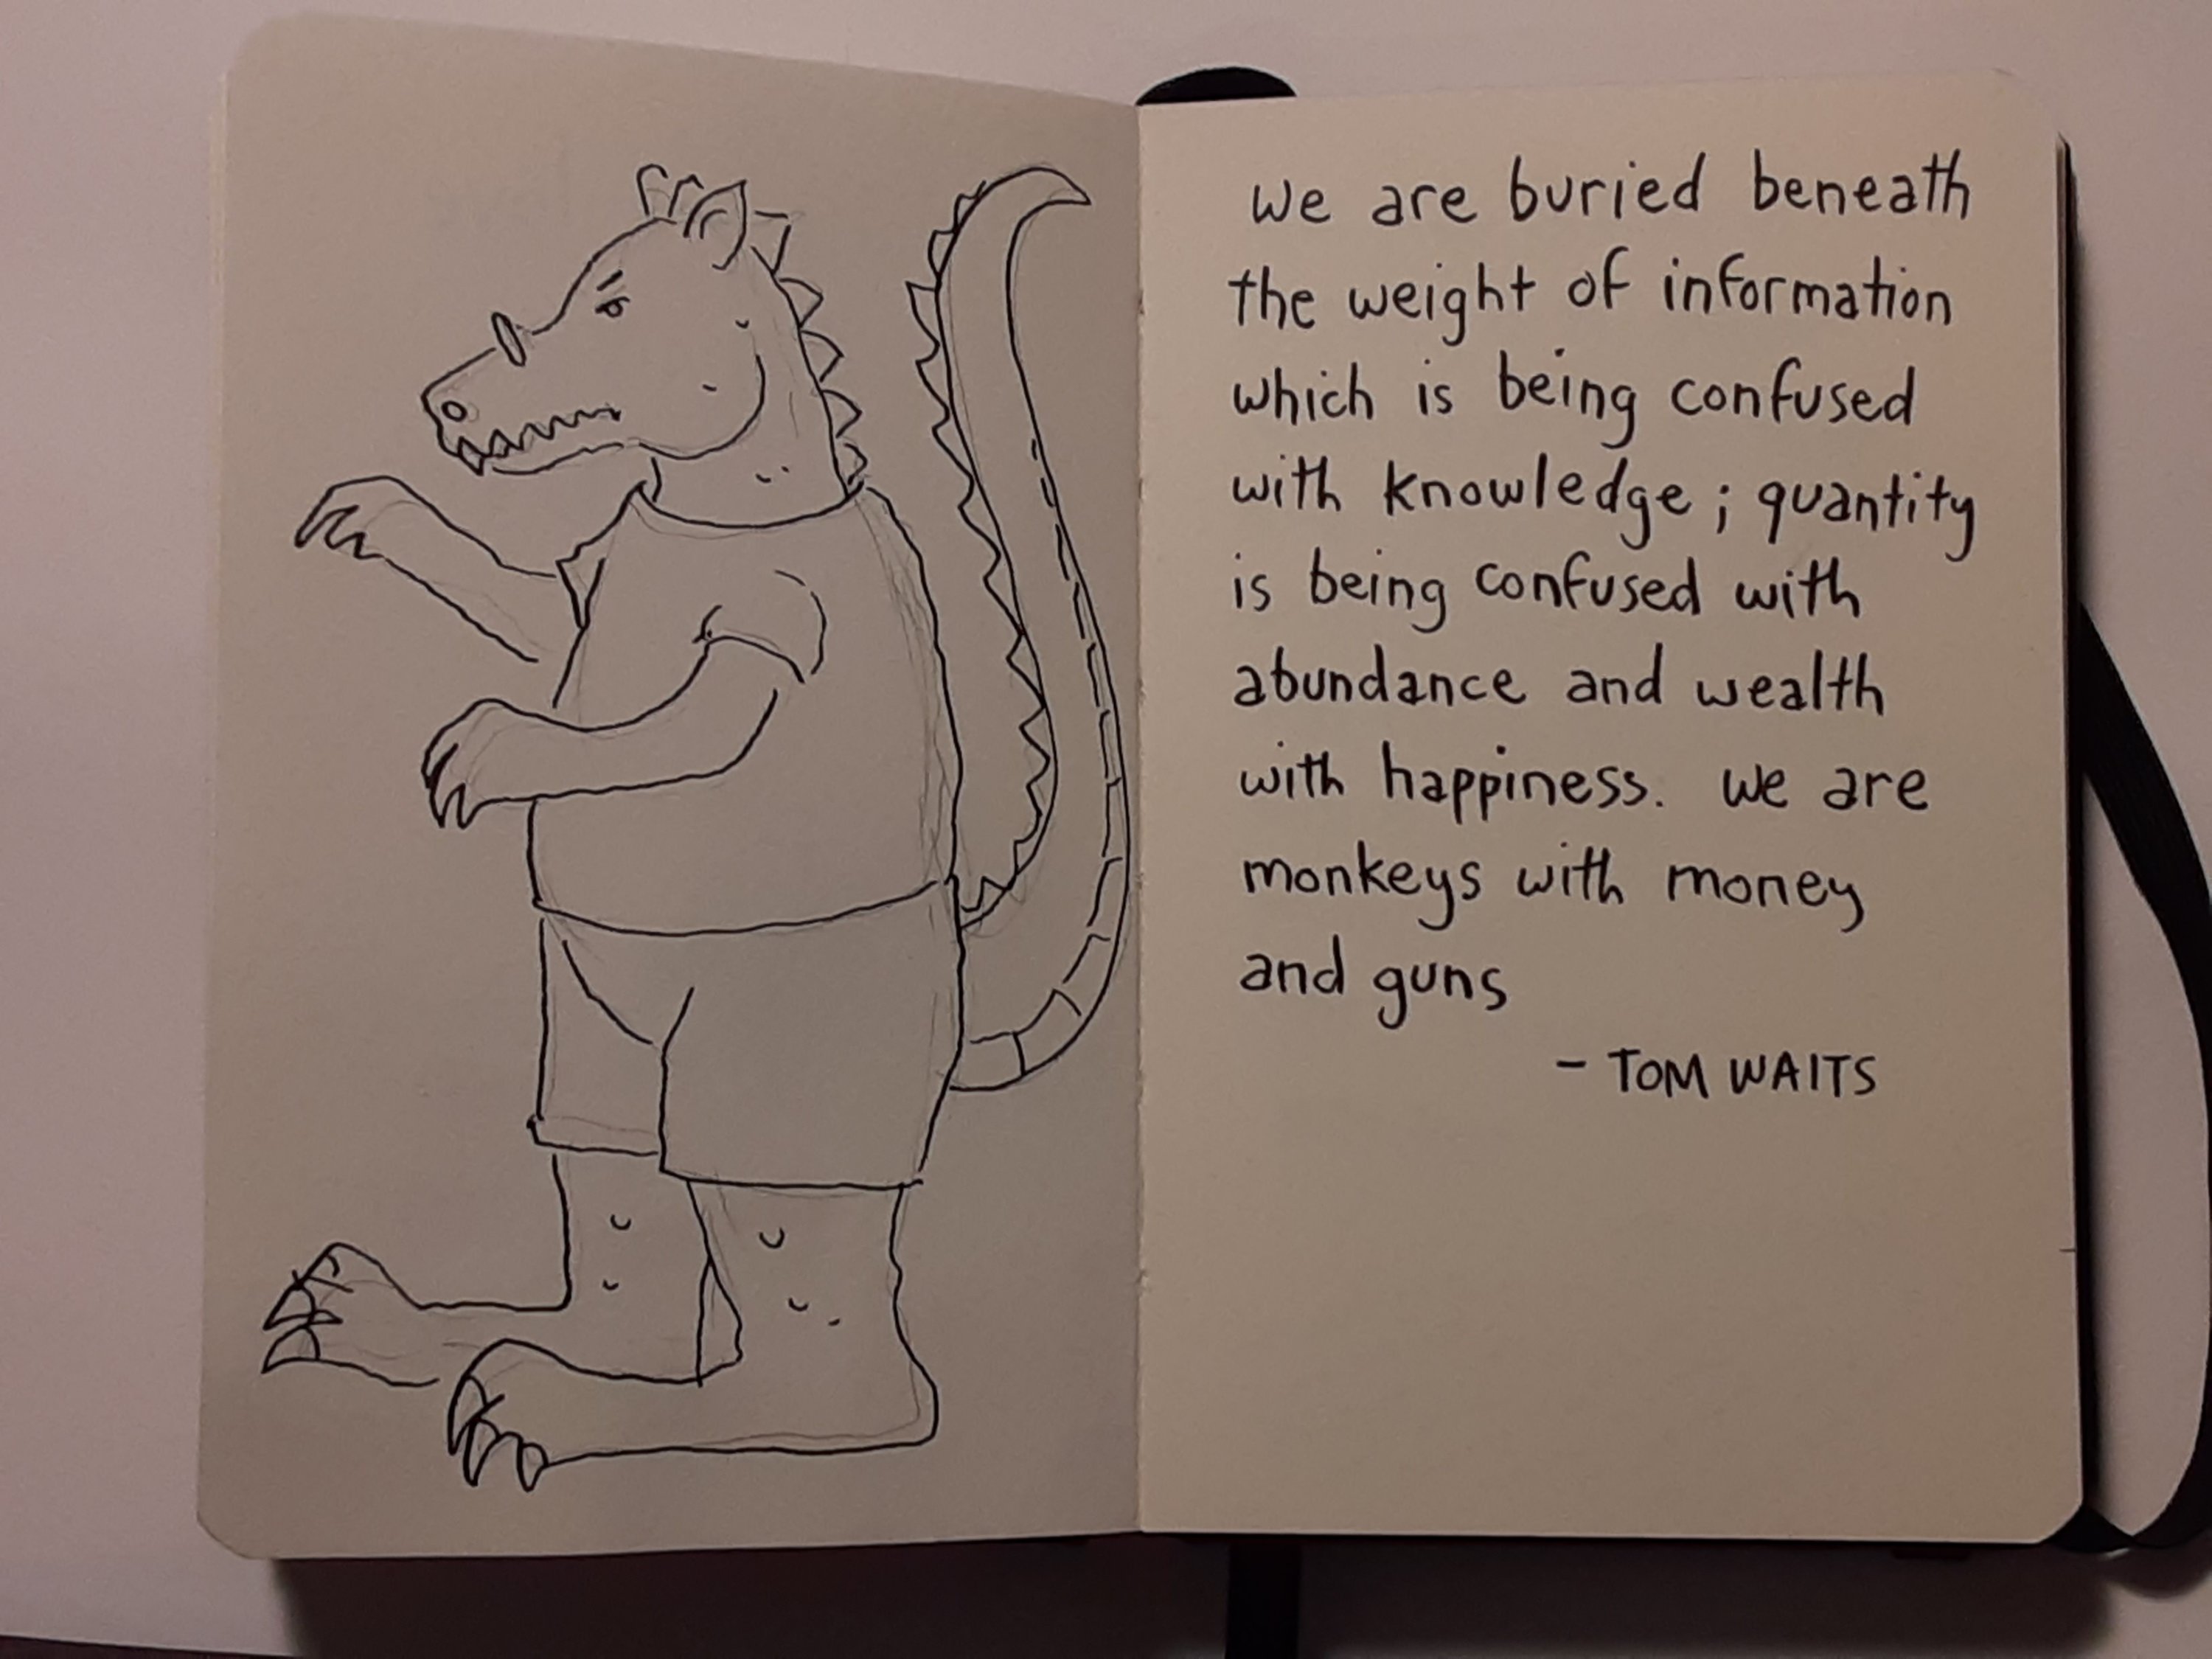 we are buried beneath
the weight of information
which is being confused
with knowledge; quantity
is being confused with
abundance and wealth
with happiness. we are
monkeys with money
and guns
- TOM WAITS